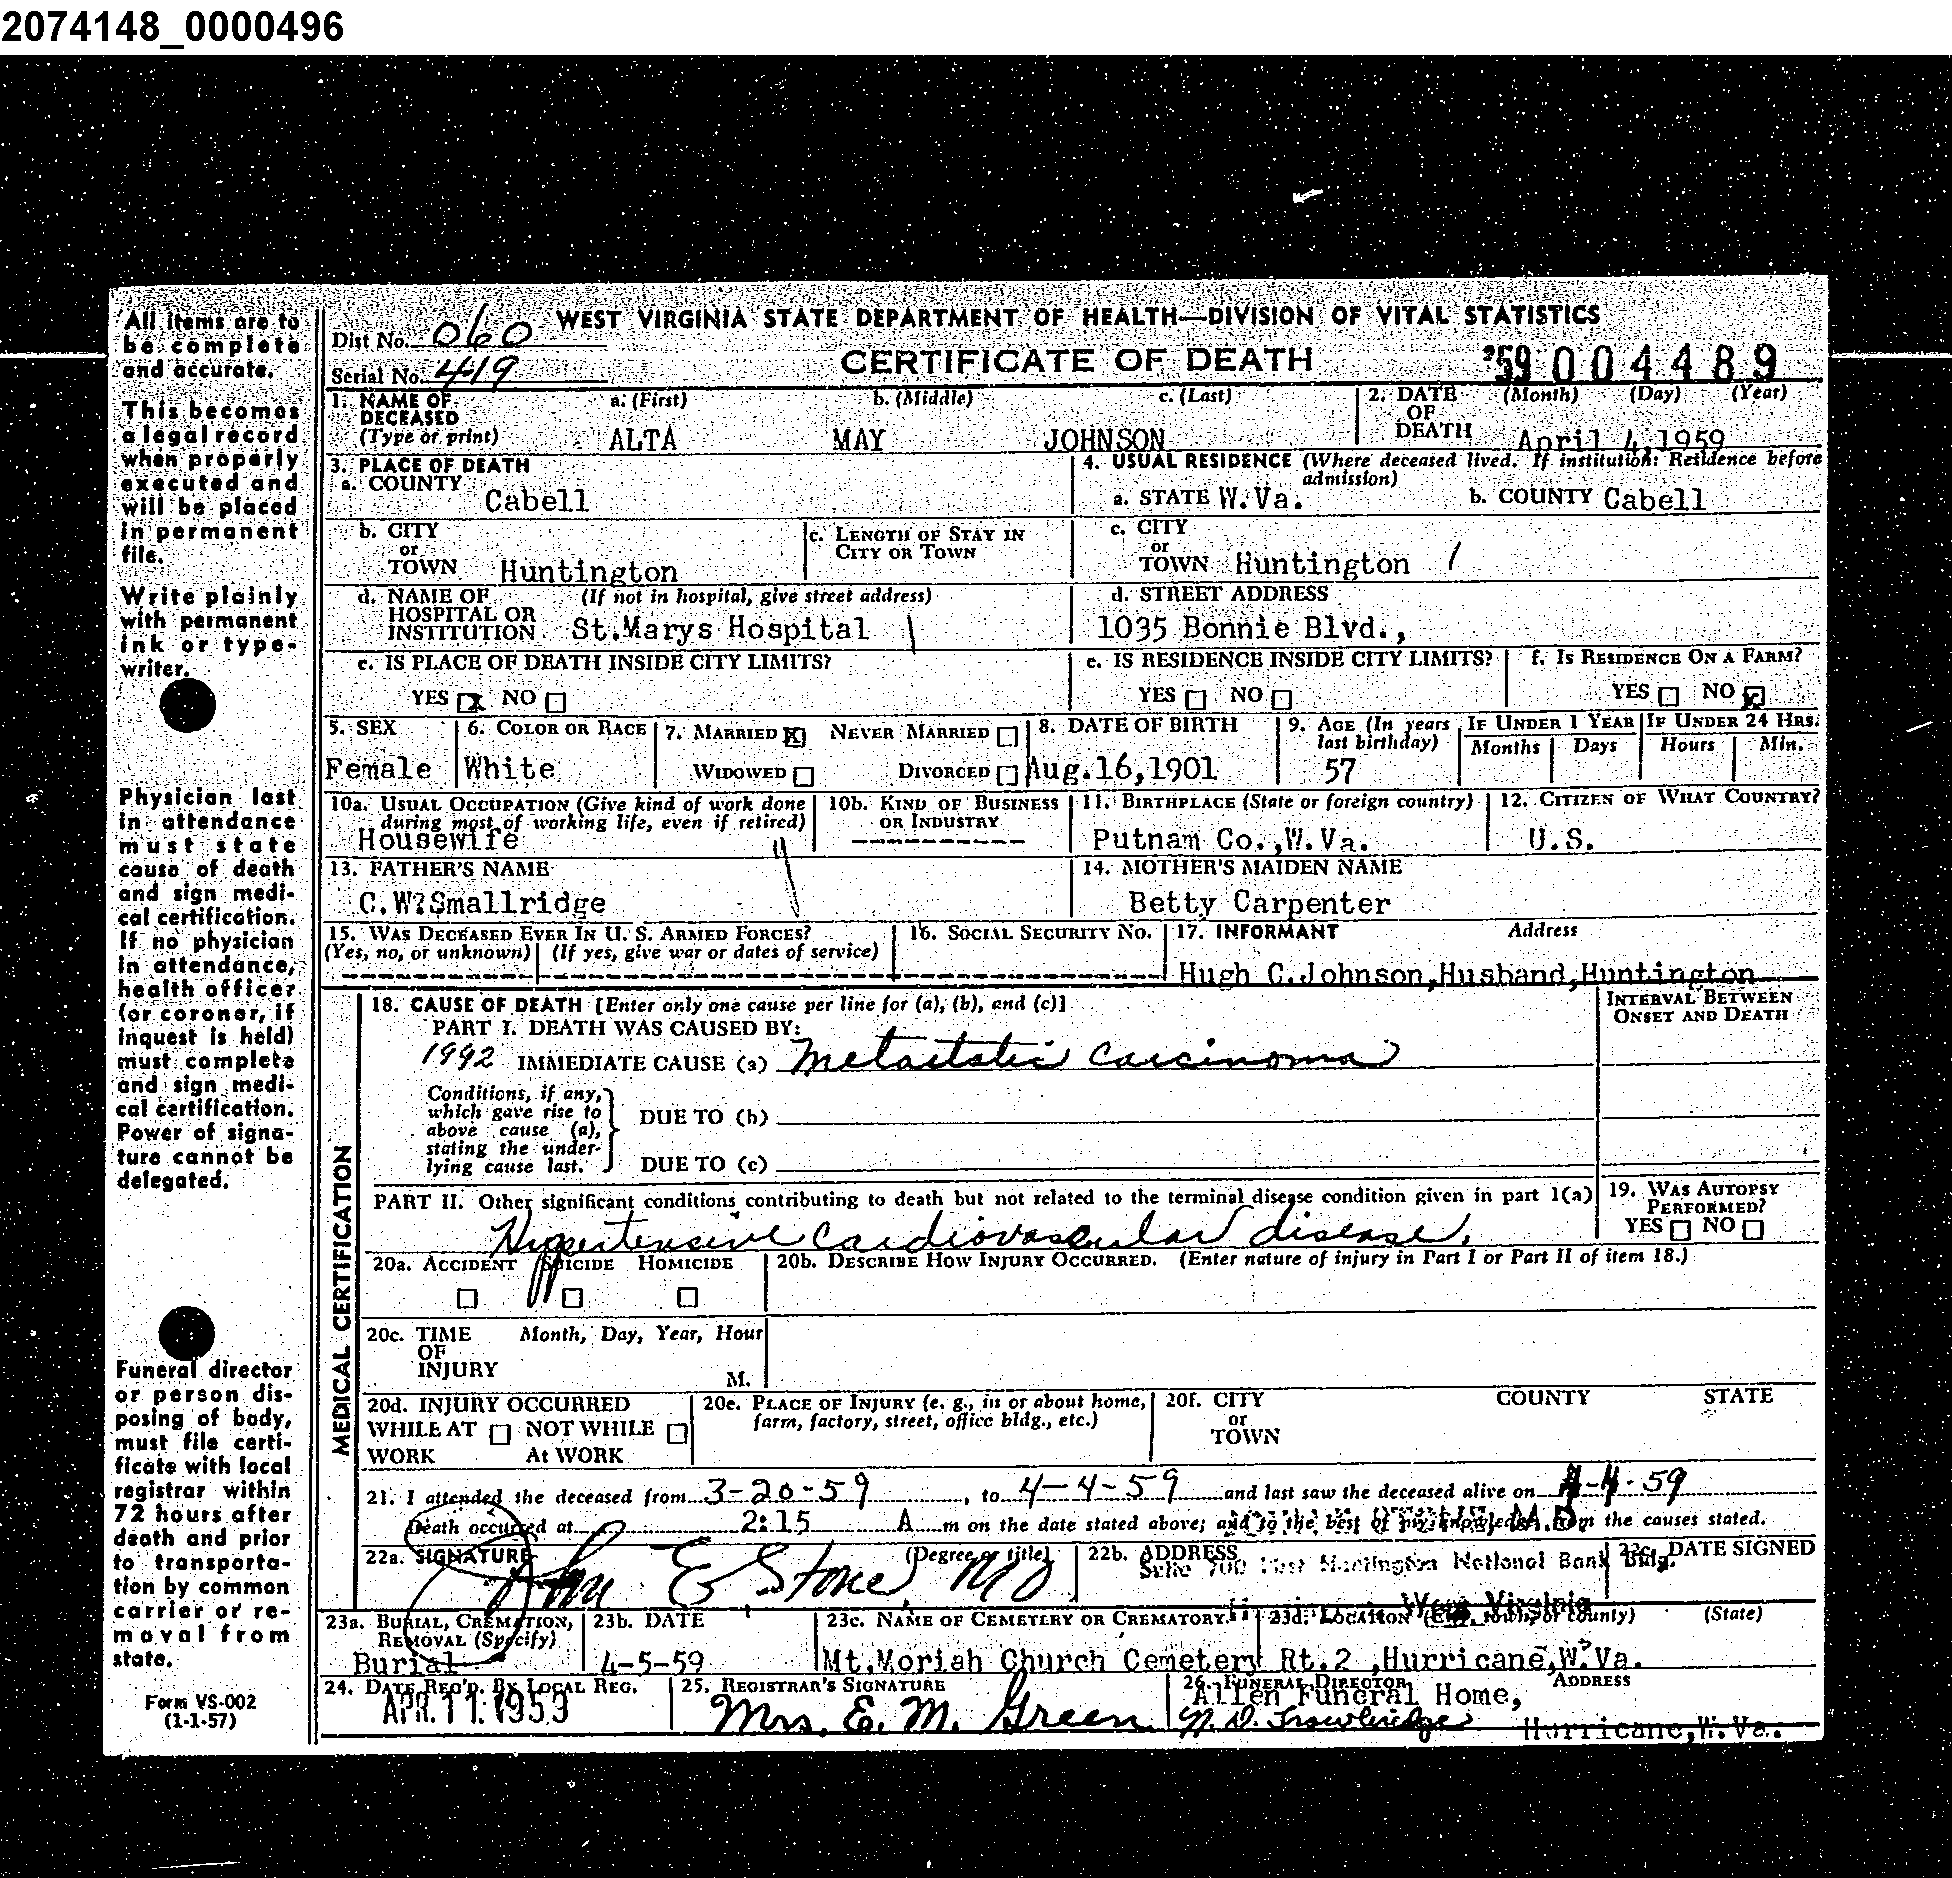 2074148_0000496
All items are to
be complete
and accurate.
This becomes
a legal record
when properly
executed and
will be placed
in permanent
file.
Write plainly
with permanent
ink or type-
writer.
Physician last
in attendance
must state
cause of death
and sign medi-
cal certification.
If no physician
in attendance,
health officer
(or coroner, if
inquest is held)
must complete
and sign medi-
cal certification.
Power of signa-
ture cannot be
delegated.
Funeral director
or person dis-
posing of body,
must file certi-
ficate with local
registrar within
72 hours after
death and prior
to transporta-
tion by common
carrier or re-
moval from
state.
Form VS-002
(1-1-57)
Dist No. 060 WEST VIRGINIA STATE DEPARTMENT OF HEALTH—DIVISION OF VITAL STATISTICS
Serial No. 419 CERTIFICATE OF DEATH '59 004489
1. NAME OF DECEASED (Type or print) a. (First) b. (Middle) c. (Last) 2. DATE OF DEATH (Month) (Day) (Year)
ALTA MAY JOHNSON April 4,1959
3. PLACE OF DEATH 4. USUAL RESIDENCE (Where deceased lived. If institution: Residence before admission)
a. COUNTY Cabell a. STATE W.Va. b. COUNTY Cabell
b. CITY or TOWN Huntington c. LENGTH OF STAY IN CITY OR TOWN c. CITY or TOWN Huntington /
d. NAME OF HOSPITAL OR INSTITUTION (If not in hospital, give street address) St.Marys Hospital d. STREET ADDRESS 1035 Bonnie Blvd.,
e. IS PLACE OF DEATH INSIDE CITY LIMITS? e. IS RESIDENCE INSIDE CITY LIMITS? f. IS RESIDENCE ON A FARM?
YES x NO YES NO YES NO x
5. SEX 6. COLOR OR RACE 7. MARRIED X NEVER MARRIED 8. DATE OF BIRTH 9. AGE (In years last birthday) IF UNDER 1 YEAR IF UNDER 24 HRS.
Months Days Hours Min.
Female White WIDOWED DIVORCED Aug.16,1901 57
10a. USUAL OCCUPATION (Give kind of work done during most of working life, even if retired) 10b. KIND OF BUSINESS OR INDUSTRY 11. BIRTHPLACE (State or foreign country) 12. CITIZEN OF WHAT COUNTRY?
Housewife ---------- Putnam Co.,W.Va. U.S.
13. FATHER'S NAME 14. MOTHER'S MAIDEN NAME
C.W?Smallridge Betty Carpenter
15. WAS DECEASED EVER IN U. S. ARMED FORCES? 16. SOCIAL SECURITY NO. 17. INFORMANT Address
(Yes, no, or unknown) (If yes, give war or dates of service)
Hugh C.Johnson,Husband,Huntington
MEDICAL CERTIFICATION
18. CAUSE OF DEATH [Enter only one cause per line for (a), (b), and (c)] INTERVAL BETWEEN ONSET AND DEATH
PART I. DEATH WAS CAUSED BY:
1992 IMMEDIATE CAUSE (a) Metastatic carcinoma
Conditions, if any, which gave rise to above cause (a), stating the under-lying cause last.
DUE TO (b)
DUE TO (c)
PART II. Other significant conditions contributing to death but not related to the terminal disease condition given in part 1(a) 19. WAS AUTOPSY PERFORMED?
Hypertensive cardiovascular disease. YES NO
20a. ACCIDENT SUICIDE HOMICIDE 20b. DESCRIBE HOW INJURY OCCURRED. (Enter nature of injury in Part I or Part II of item 18.)
20c. TIME OF INJURY Month, Day, Year, Hour M.
20d. INJURY OCCURRED 20e. PLACE OF INJURY (e. g., in or about home, farm, factory, street, office bldg., etc.) 20f. CITY or TOWN COUNTY STATE
WHILE AT WORK NOT WHILE At WORK
21. I attended the deceased from 3-20-59, to 4-4-59 and last saw the deceased alive on 4-4-59
Death occurred at 2:15 A m on the date stated above; and to the best of my knowledge, from the causes stated.
M.D.
22a. SIGNATURE (Degree or title) 22b. ADDRESS 22c. DATE SIGNED
John E Stone, MD Suite 700 First Huntington National Bank Bldg.
West Virginia
23a. BURIAL, CREMATION, REMOVAL (Specify) 23b. DATE 23c. NAME OF CEMETERY OR CREMATORY 23d. LOCATION (City, town, or county) (State)
Burial 4-5-59 Mt.Moriah Church Cemetery Rt.2 ,Hurricane,W.Va.
24. DATE REC'D. BY LOCAL REG. 25. REGISTRAR'S SIGNATURE 26. FUNERAL DIRECTOR ADDRESS
APR. 11. 1959 Mrs. E. M. Green Allen Funeral Home,
N. D. Trowbridge Hurricane,W.Va.